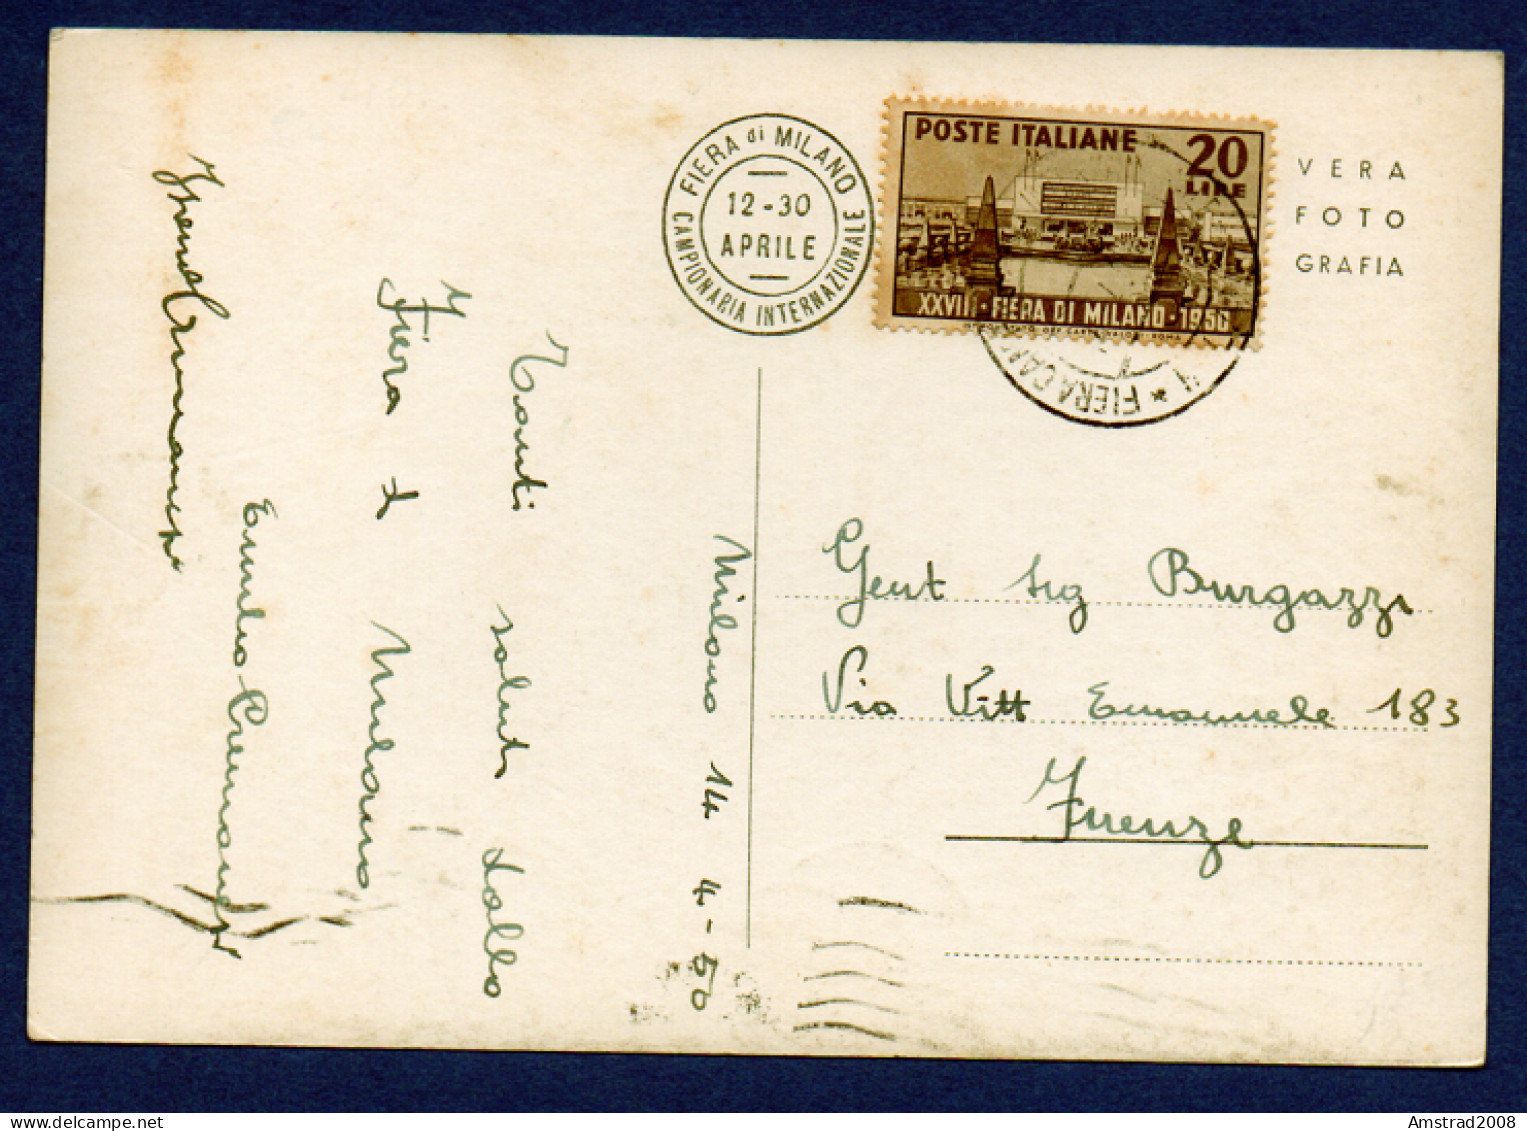 FIERA di MILANO
12-30
APRILE
CAMPIONARIA INTERNAZIONALE
POSTE ITALIANE
20
LIRE
XXVIII · FIERA DI MILANO · 1950
FIERA
VERA
FOTO
GRAFIA
Milano 14 4-50
Tanti saluti dalla
Fiera d Milano
Emilio Cremonesi
Gent sig Burgazzi
Via Vitt Emanuele 183
Firenze
Amstrad2008